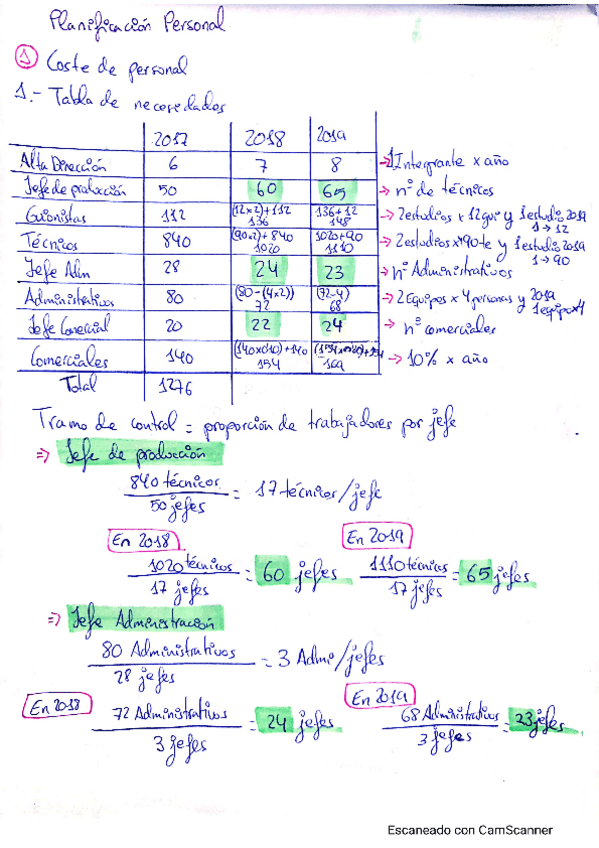 Planificación Personal
① Coste de personal
1.- Tabla de necesidades
2017 2018 2019
Alta Dirección 6 7 8 → 1 Integrante x año
Jefe de producción 50 60 65 → nº de técnicos
Guionistas 112 (12x2)+112 136 136+12 148 → 2 estudios x 12 gui y 1 estudio 2019 1→12
Técnicos 840 (90x2)+840 1020 1020+90 1110 → 2 estudios x 90 te y 1 estudio 2019 1→90
Jefe Adm 28 24 23 → nº Administrativos
Administrativos 80 (80-(4x2)) 72 (72-4) 68 → 2 Equipos x 4 personas y 2019 1 equipo x 4
Jefe Comercial 20 22 24 → nº comerciales
Comerciales 140 (140x0'10)+140 154 169 → 10% x año
Total 1276
Tramo de control = proporción de trabajadores por jefe
⇒ Jefe de producción
840 técnicos / 50 jefes = 17 técnicos/jefe
En 2018 En 2019
1020 técnicos / 17 jefes = 60 jefes 1110 técnicos / 17 jefes = 65 jefes
⇒ Jefe Administración
80 Administrativos / 28 jefes = 3 Admi/jefes
En 2018 En 2019
72 Administrativos / 3 jefes = 24 jefes 68 Administrativos / 3 jefes = 23 jefes
Escaneado con CamScanner